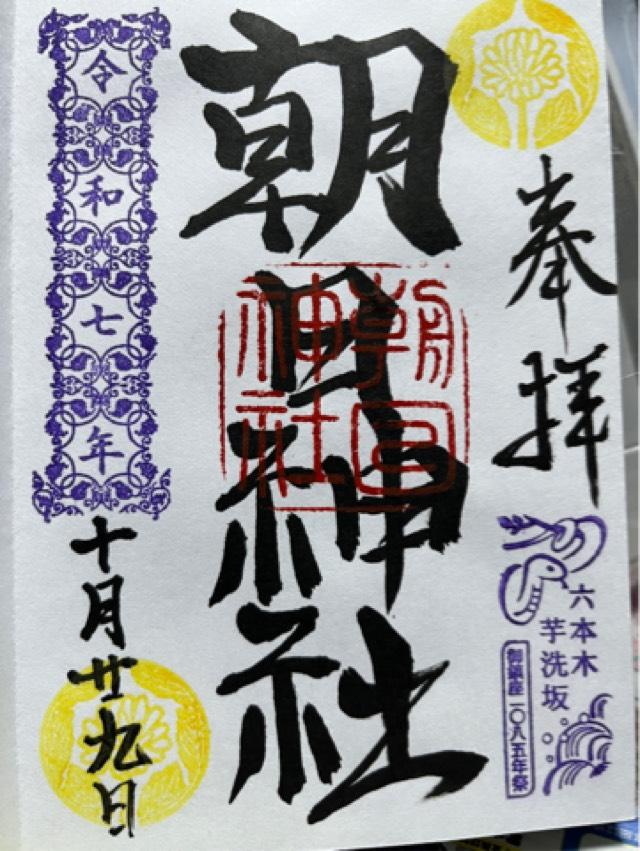 奉拝
六本木
芋洗坂
御鎮座一〇八五年祭
朝日神社
朝日
神社
令和七年
十月廿九日